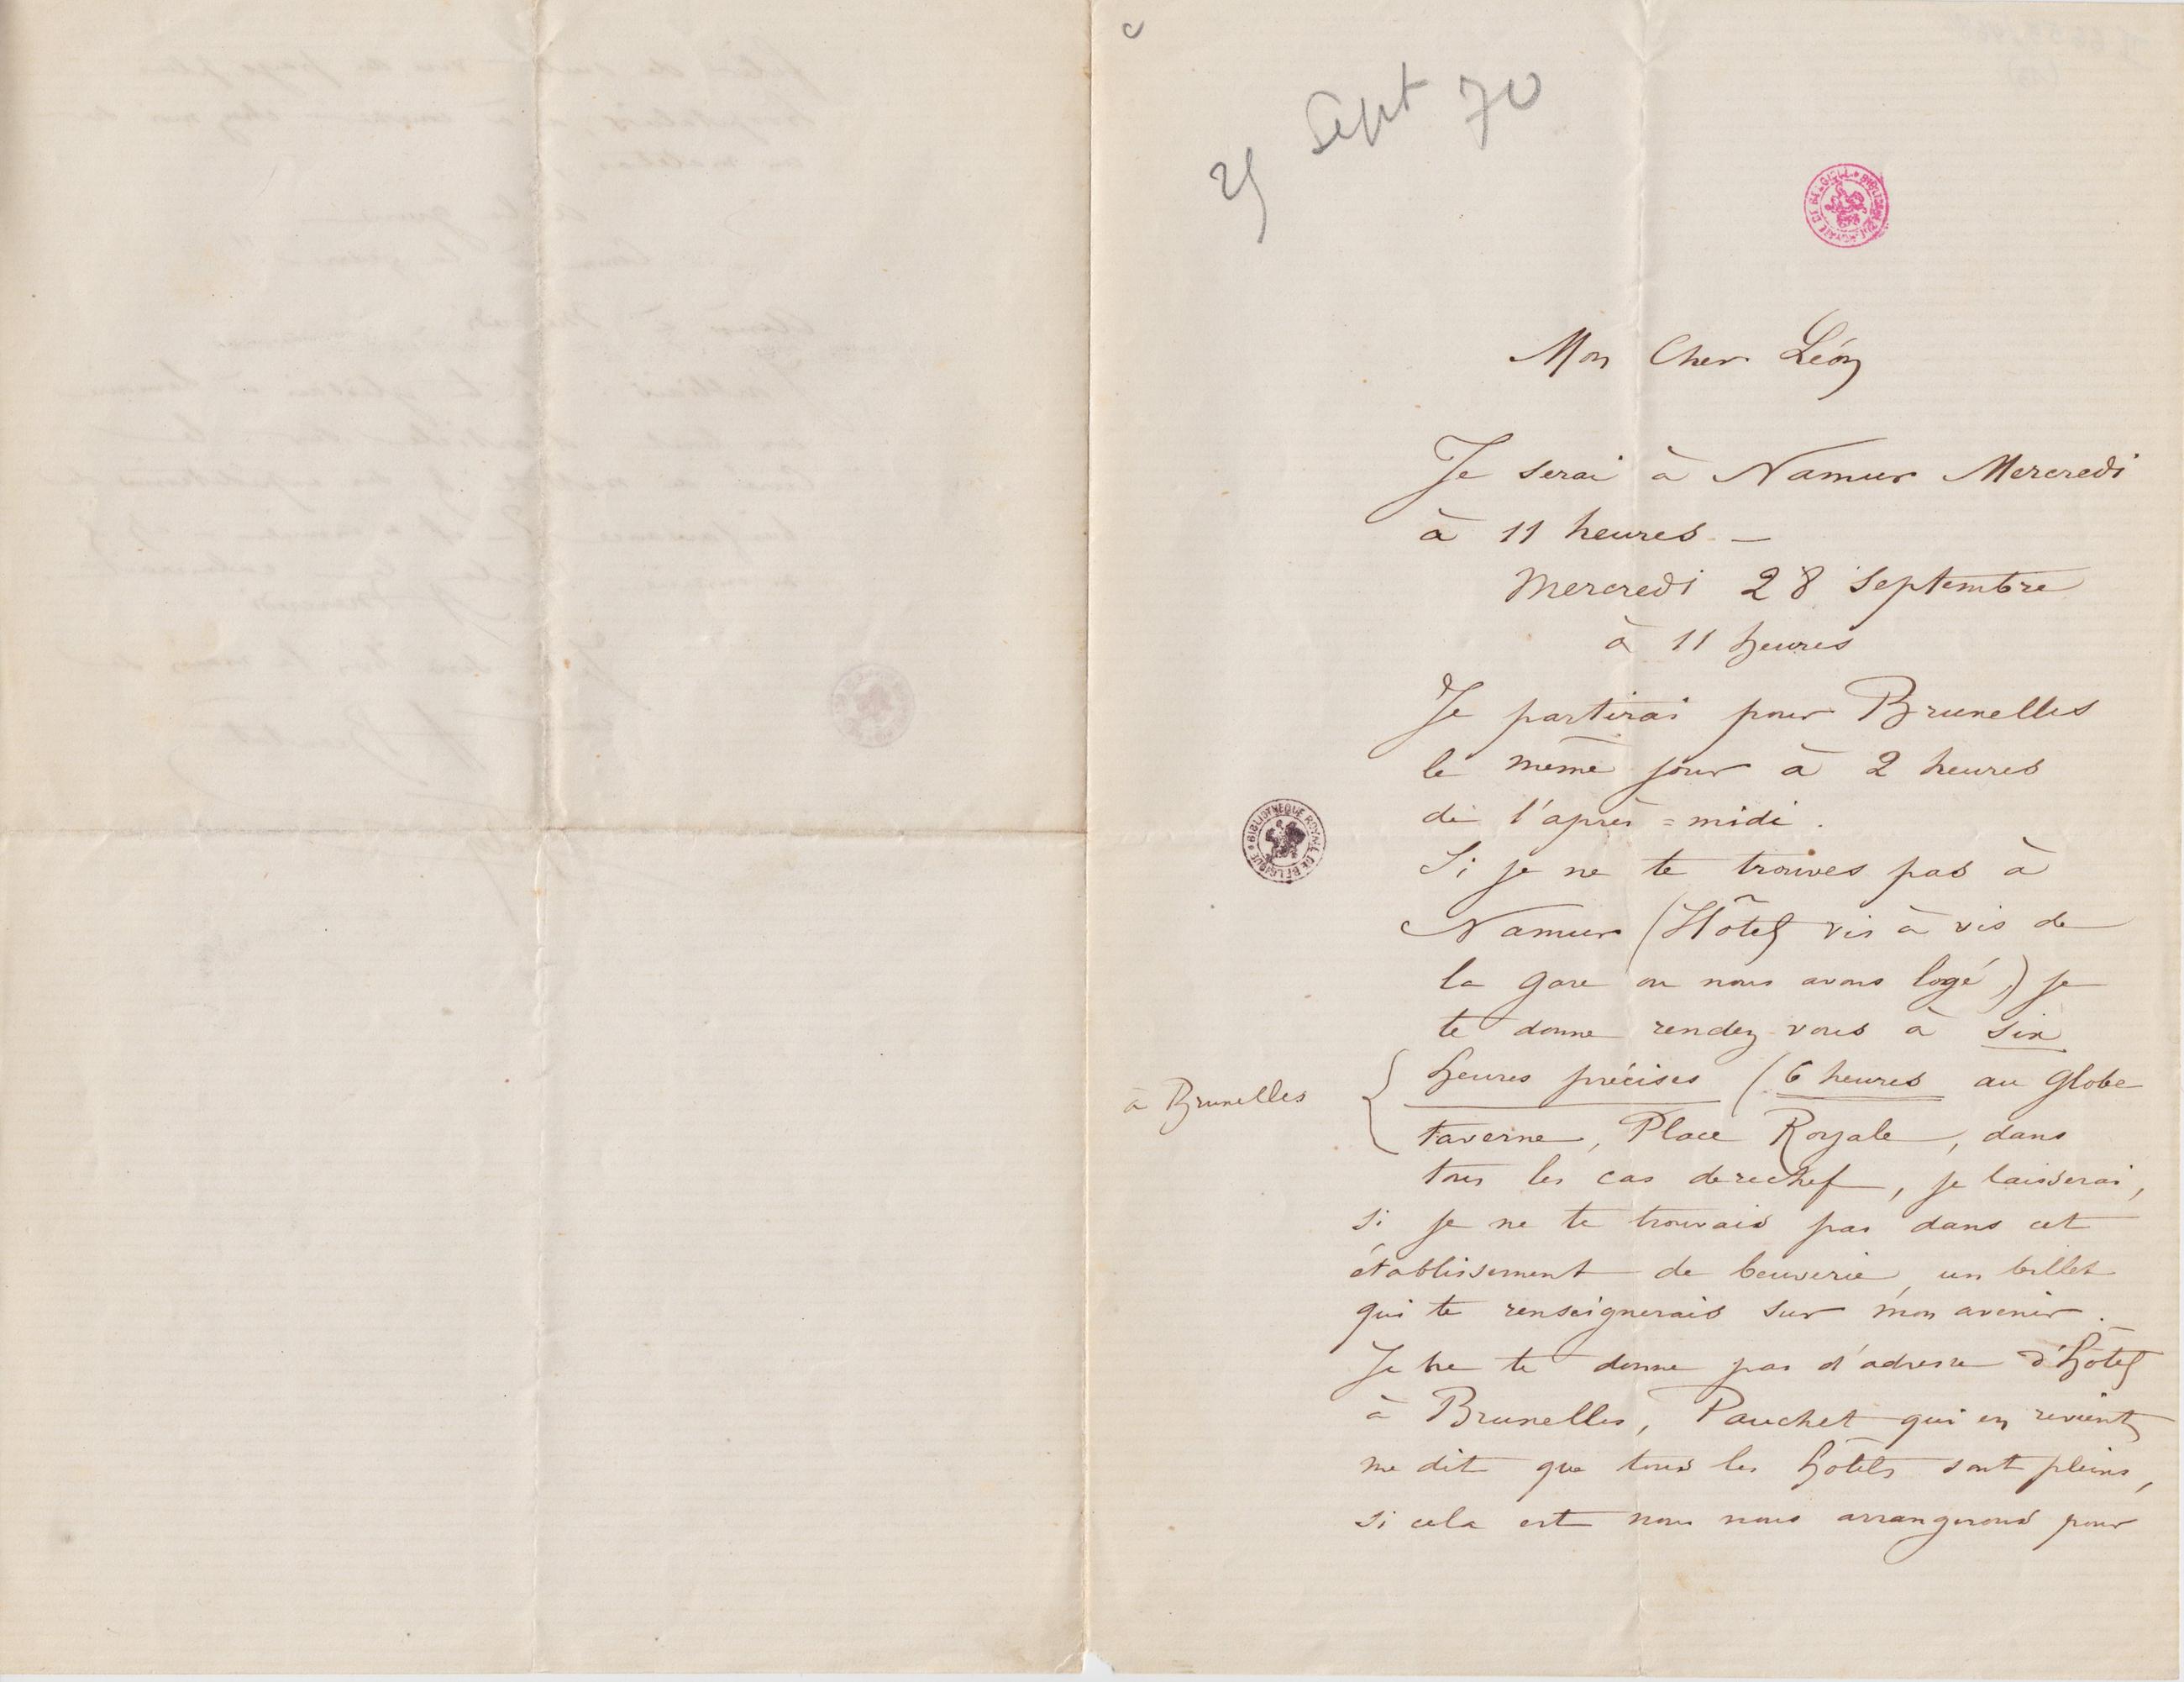 25 Sept 70
BIBLIOTHÈQUE ROYALE DE BELGIQUE
Mon Cher Léon
Je serai à Namur Mercredi
à 11 heures –
Mercredi 28 Septembre
à 11 heures
Je partirai pour Bruxelles
le même jour à 2 heures
de l'après=midi.
Si je ne te trouves pas à
Namur (Hôtel vis à vis de
la gare ou nous avons logé,) je
te donne rendez-vous à six
heures précises (6 heures au Globe
à Bruxelles {
taverne, Place Royale, dans
tous les cas derechef, je laisserai,
si je ne te trouvais pas dans cet
établissement de beuverie, un billet
qui te renseignerais sur mon avenir.
Je ne te donne pas d'adresse d'hôtel
à Bruxelles, Pauchet qui en revient
me dit que tous les hôtels sont pleins,
si cela est nous nous arrangerons pour
BIBLIOTHEQUE ROYALE DE BELGIQUE